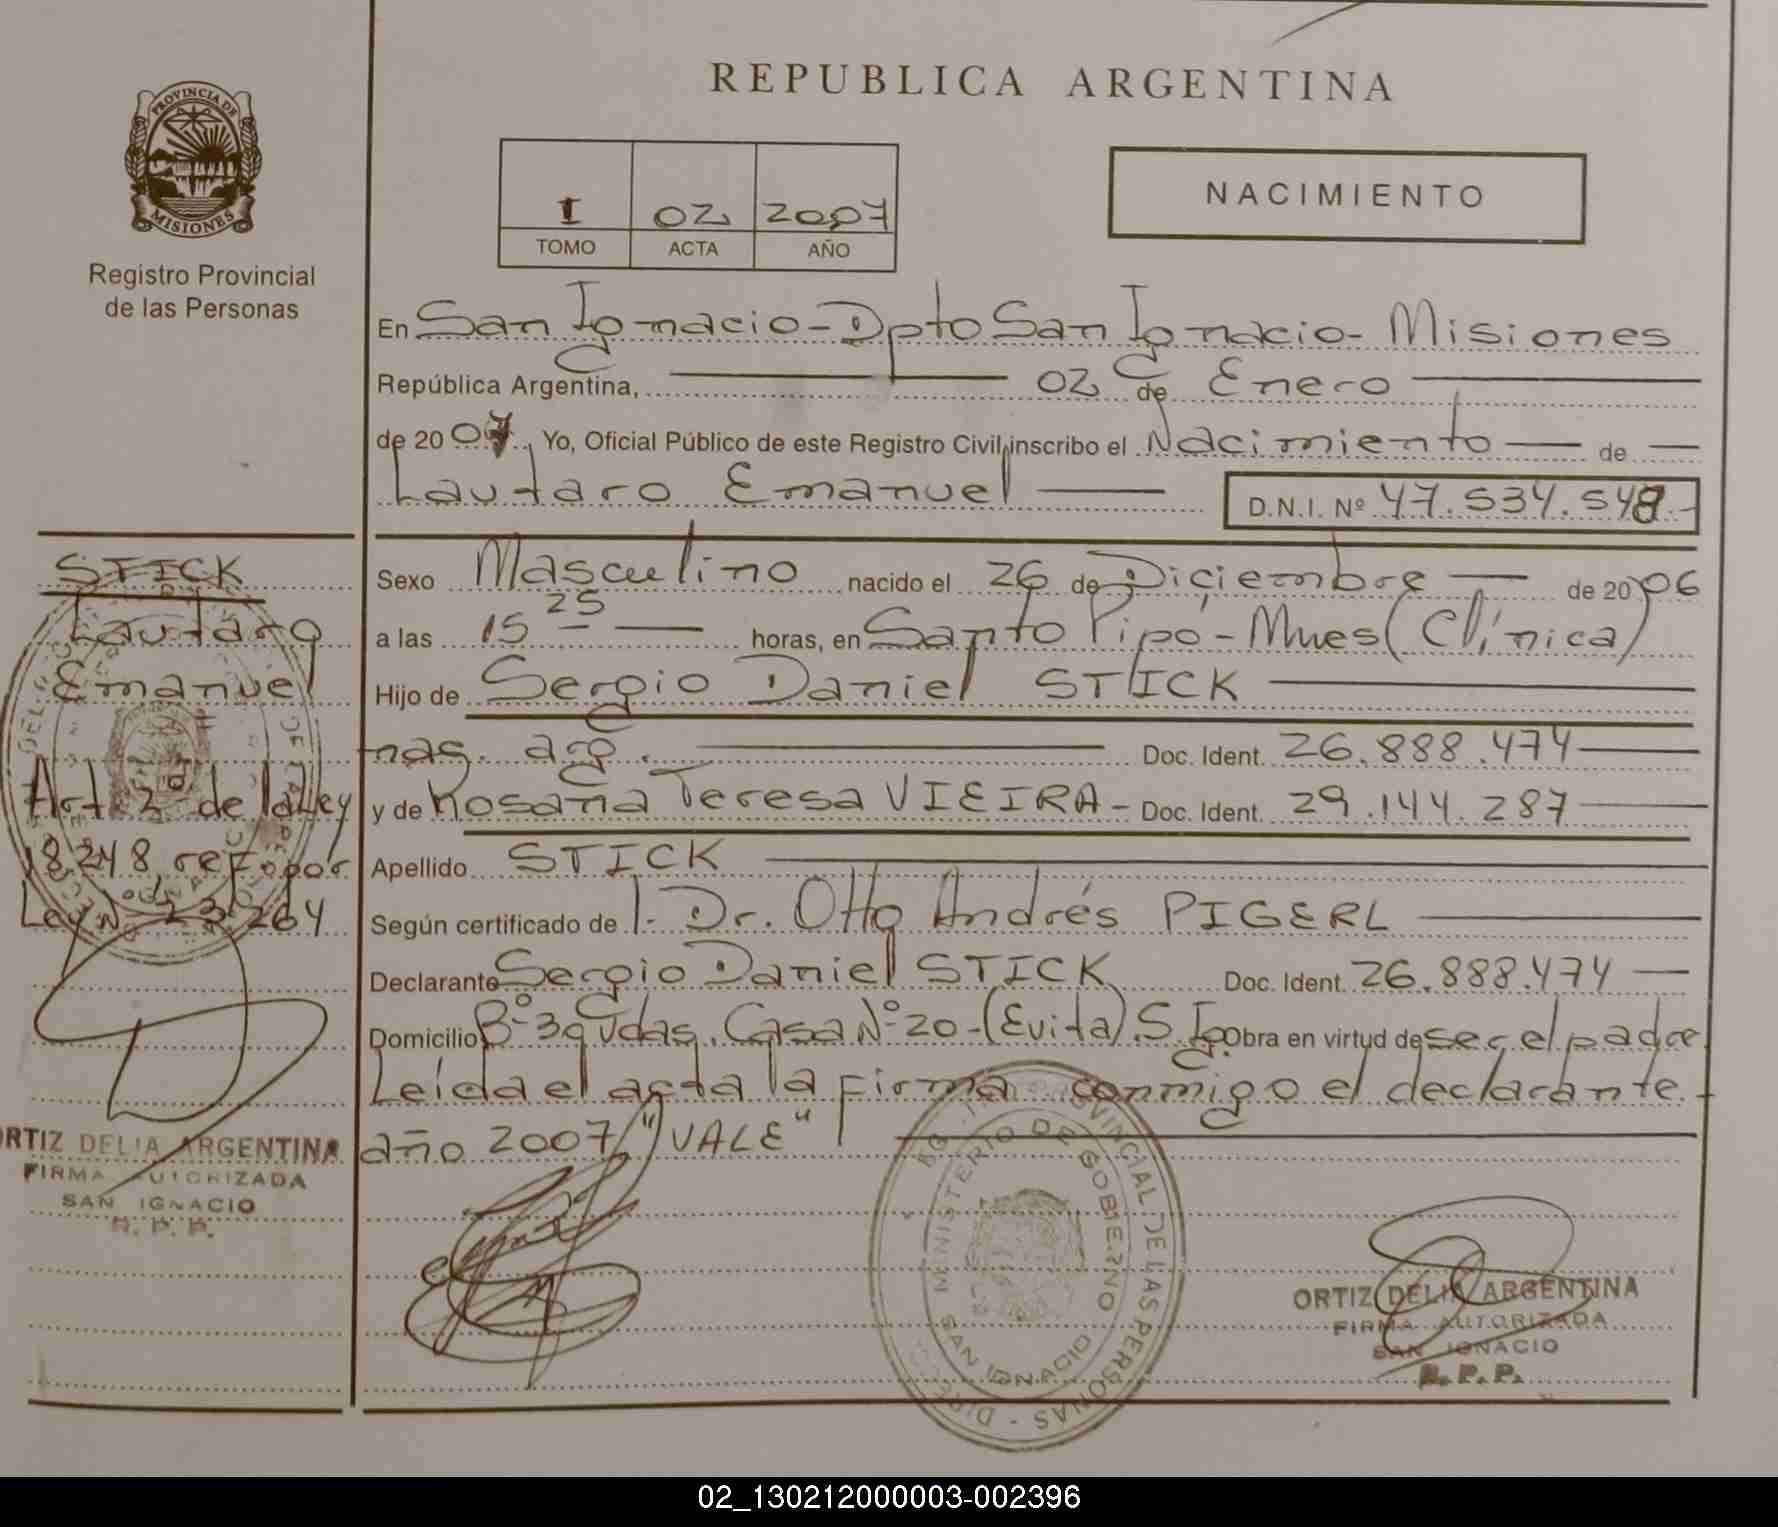 PROVINCIA DE
MISIONES
Registro Provincial
de las Personas
REPUBLICA ARGENTINA
I 02 2007
TOMO ACTA AÑO
NACIMIENTO
En San Ignacio - Dpto San Ignacio - Misiones
República Argentina, 02 de Enero
de 2007. Yo, Oficial Público de este Registro Civil inscribo el Nacimiento de
Lautaro Emanuel D.N.I. Nº 47.534.548.-
Sexo Masculino nacido el 26 de Diciembre de 2006
a las 15 25 horas, en Santo Pipó - Mnes (Clínica)
Hijo de Sergio Daniel STICK
nac. arg. Doc. Ident. 26.888.474
y de Rosana Teresa VIEIRA - Doc. Ident. 29.144.287
Apellido STICK
Según certificado de l. Dr. Otto Andrés PIGERL
Declarante Sergio Daniel STICK Doc. Ident. 26.888.474
Domicilio Bº 39 Vdas. Casa Nº 20 - (Evita). S. Ig. Obra en virtud de ser el padre
Leída el acta la firma conmigo el declarante -
año 2007 "VALE"
STICK
Lautaro
Emanuel
Art 3º de la Ley
18248, ref. por
Ley Nº 23.264
ORTIZ DELIA ARGENTINA
FIRMA AUTORIZADA
SAN IGNACIO
R. P. P.
MINISTERIO DE GOBIERNO
PROVINCIAL DE LAS PERSONAS
SAN IGNACIO
ORTIZ DELIA ARGENTINA
FIRMA AUTORIZADA
SAN IGNACIO
R. P. P.
02_130212000003-002396